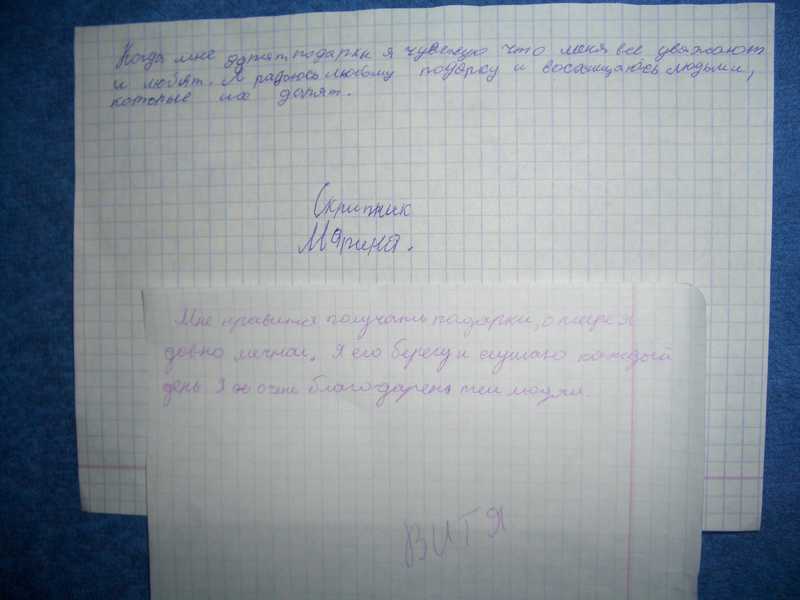 Когда мне дарят подарки я чувствую что меня все уважают
и любят. Я радуюсь любому подарку и восхищаюсь людьми,
которые их дарят.
Скрипник
Марина.
Мне нравится получать подарки, о плере я
довно мечтал. Я его берегу и слушаю каждый
день. Я очень благодарен тем людям.
ВИТЯ